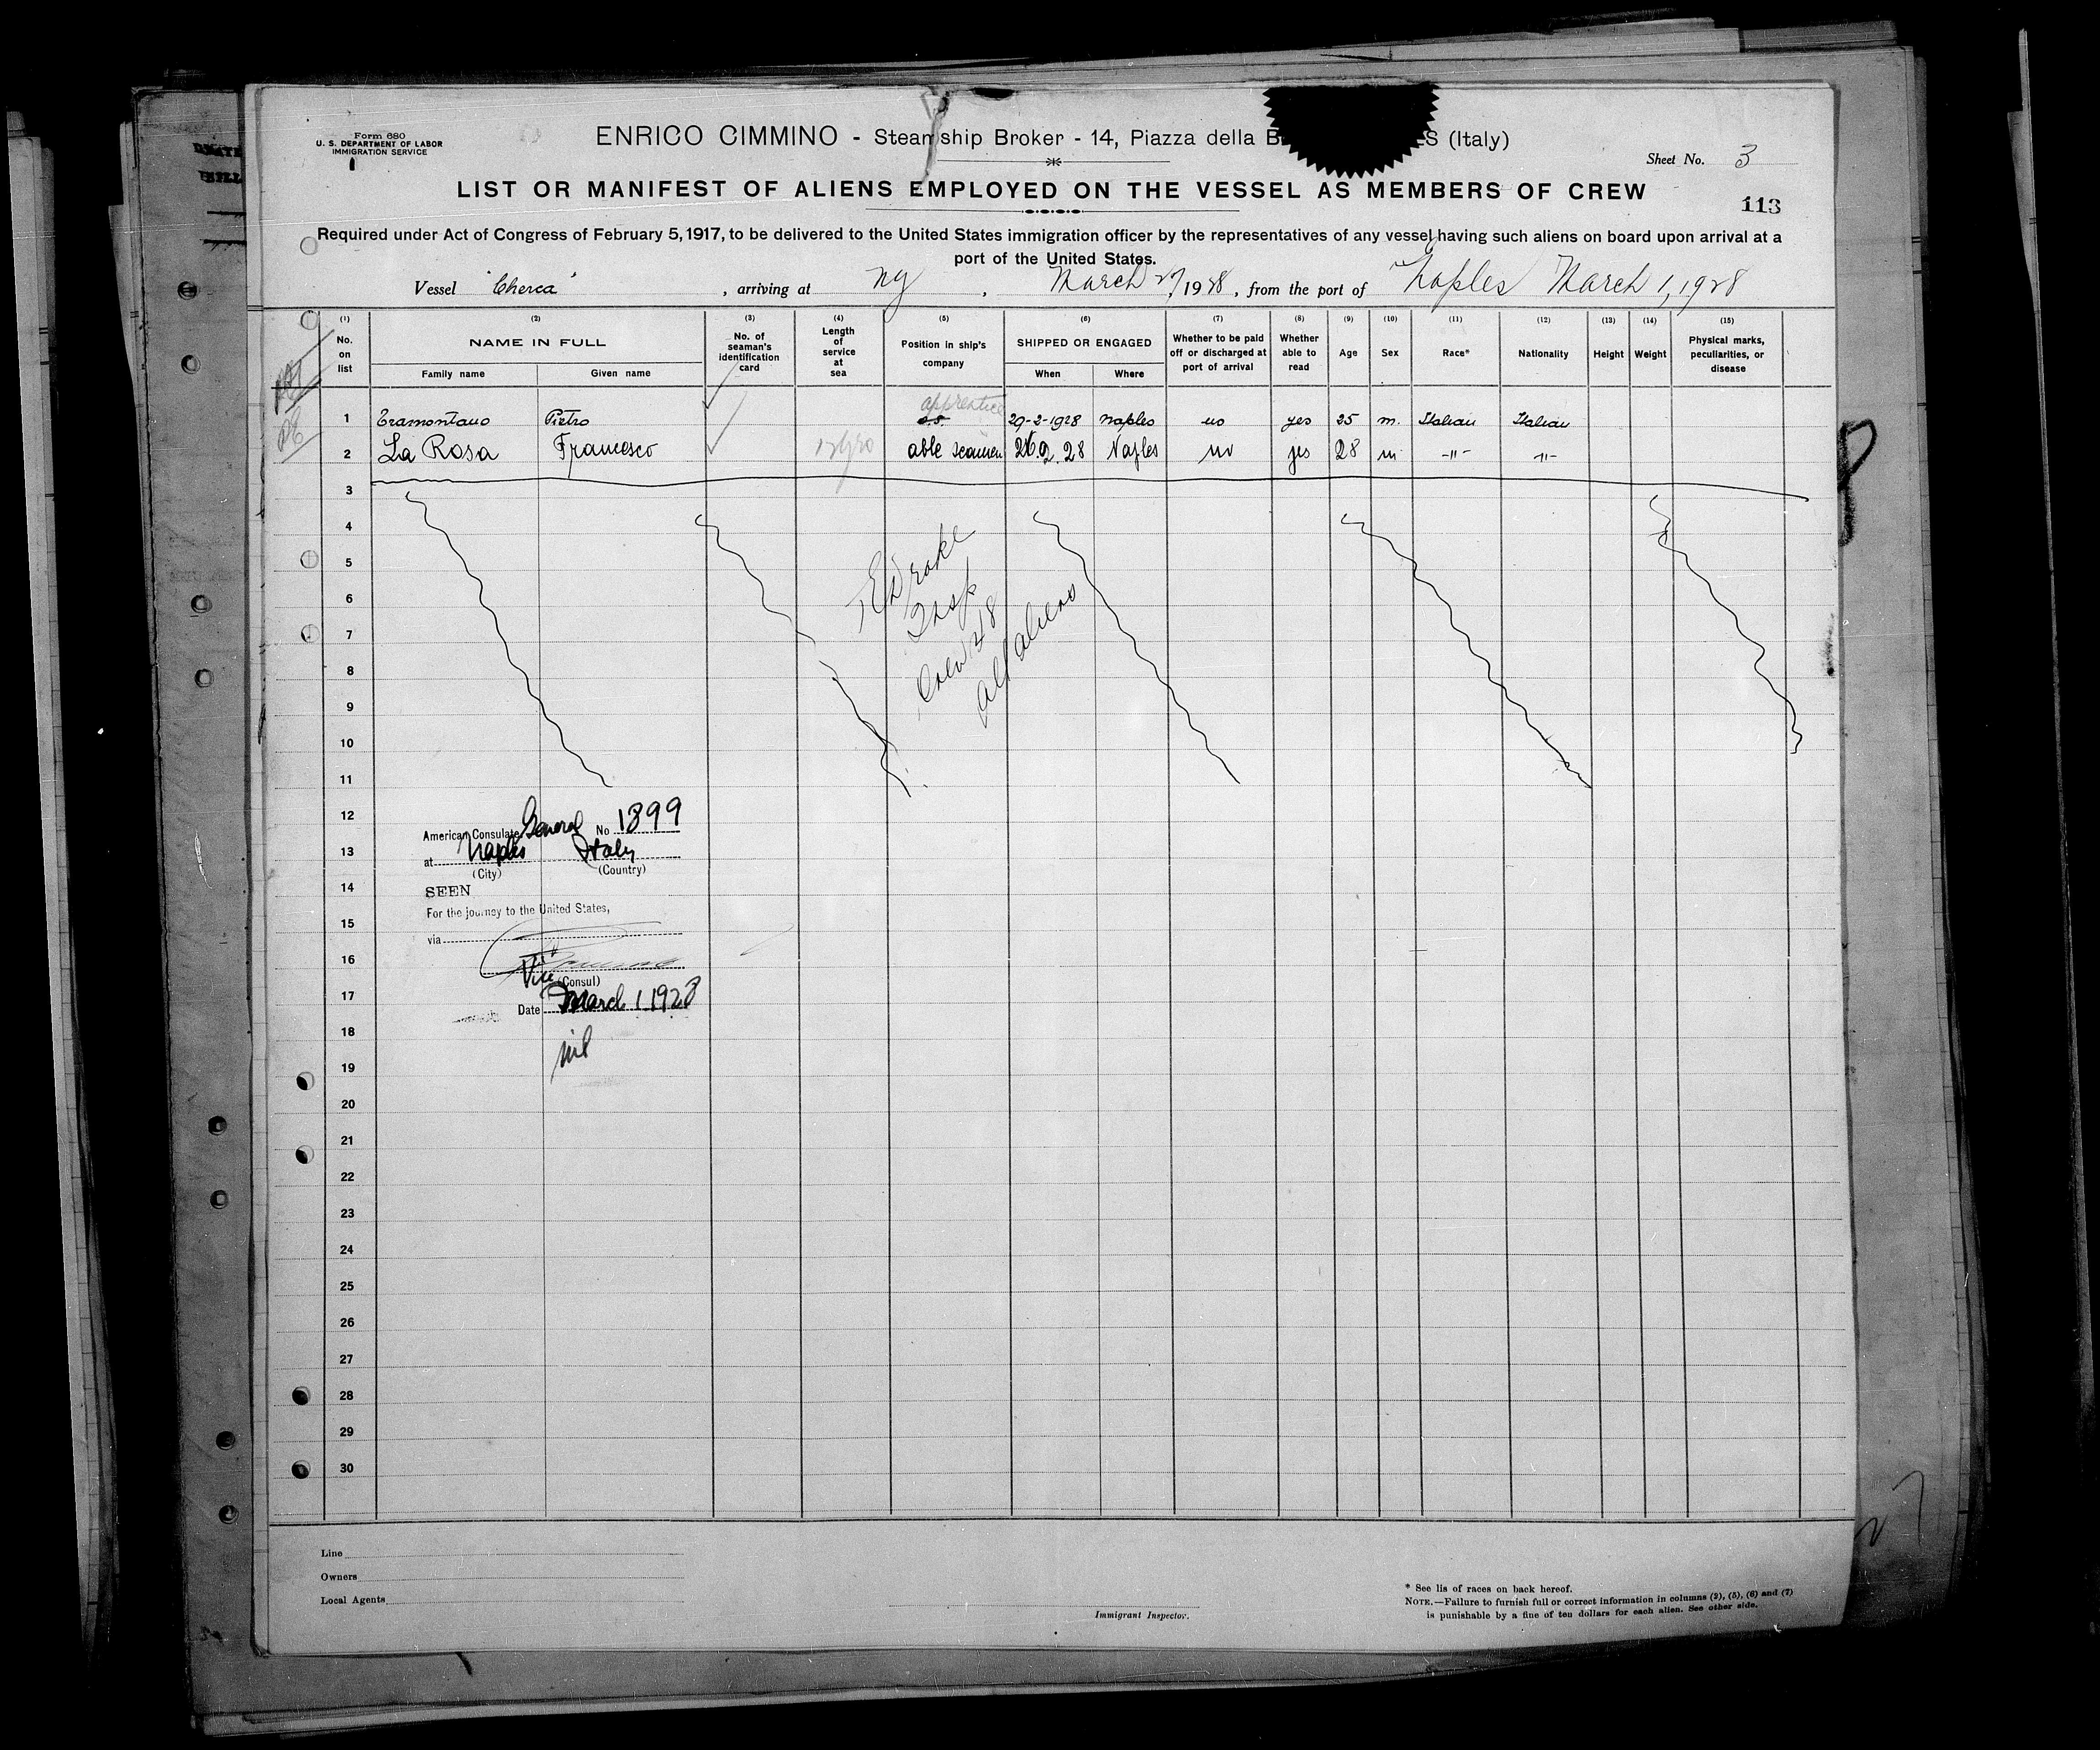 Form 680
U. S. DEPARTMENT OF LABOR
IMMIGRATION SERVICE
ENRICO CIMMINO - Steamship Broker - 14, Piazza della B ES (Italy)
Sheet No. 3
LIST OR MANIFEST OF ALIENS EMPLOYED ON THE VESSEL AS MEMBERS OF CREW
113
Required under Act of Congress of February 5, 1917, to be delivered to the United States immigration officer by the representatives of any vessel having such aliens on board upon arrival at a
port of the United States.
Vessel "Cherca" , arriving at NY , March 27, 1928, from the port of Naples March 1, 1928
(1) (2) (3) (4) (5) (6) (7) (8) (9) (10) (11) (12) (13) (14) (15)
No. on list
NAME IN FULL
Family name Given name
No. of seaman's identification card
Length of service at sea
Position in ship's company
SHIPPED OR ENGAGED
When Where
Whether to be paid off or discharged at port of arrival
Whether able to read
Age
Sex
Race*
Nationality
Height
Weight
Physical marks, peculiarities, or disease
apprentice
1 Tramontano Pietro s.s. 29-2-1928 Naples no yes 25 m. Italian Italian
2 La Rosa Francesco able seamen 26.2.28 Naples no yes 28 m -"- -"-
3
4
5
6
7
8
9
10
11
12
13
14
15
16
17
18
19
20
21
22
23
24
25
26
27
28
29
30
Drake
Insp
Crew 28
all aliens
American Consulate General No 1899
at Naples Italy
(City) (Country)
SEEN
For the journey to the United States,
via
Vice (Consul)
Date March 1, 1928
Line
Owners
Local Agents
Immigrant Inspector.
* See lis of races on back hereof.
NOTE.—Failure to furnish full or correct information in columns (2), (5), (6) and (7)
is punishable by a fine of ten dollars for each alien. See other side.